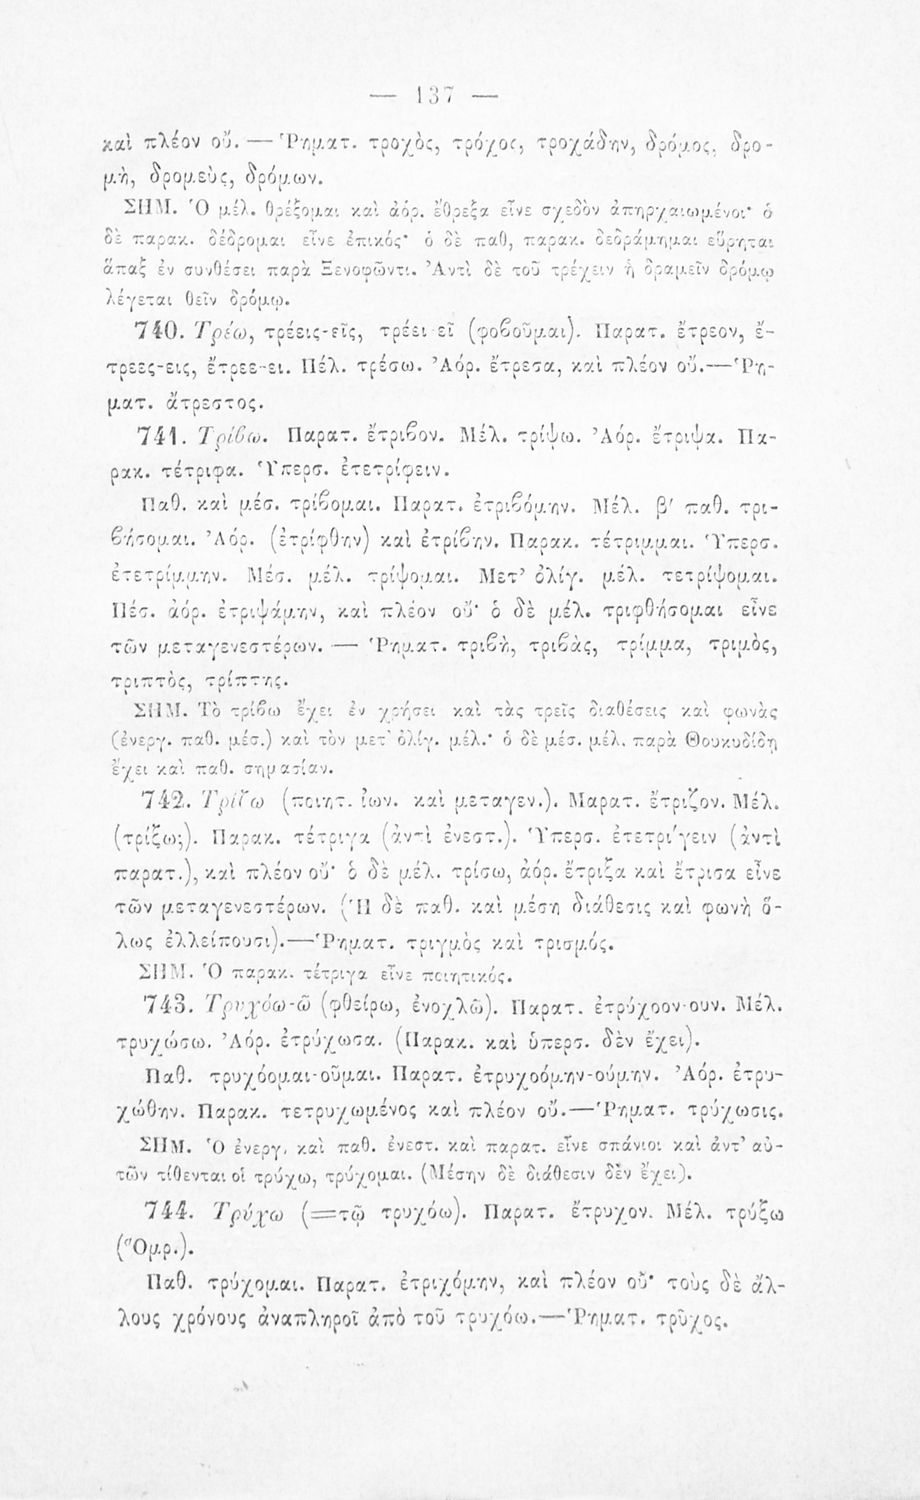 — 137 —
καὶ πλέον οὔ. — Ῥηματ. τροχὸς, τρόχος, τροχάδην, δρόμος, δρο-
μὴ, δρομεὺς, δρόμων.
ΣΗΜ. Ὁ μέλ. θρέξομαι καὶ ἀόρ. ἔθρεξα εἶνε σχεδὸν ἀπηρχαιωμένοι· ὁ
δὲ παρακ. δέδρομαι εἶνε ἐπικός· ὁ δὲ παθ, παρακ. δεδράμημαι εὕρηται
ἅπαξ ἐν συνθέσει παρὰ Ξενοφῶντι. Ἀντὶ δὲ τοῦ τρέχειν ἢ δραμεῖν δρόμῳ
λέγεται θεῖν δρόμῳ.
740. Τρέω, τρέεις-εῖς, τρέει-εῖ (φοβοῦμαι). Παρατ. ἔτρεον, ἔ-
τρεες-εις, ἔτρεε-ει. Πέλ. τρέσω. Ἀόρ. ἔτρεσα, καὶ πλέον οὔ.—Ῥη-
ματ. ἄτρεστος.
741. Τρίβω. Παρατ. ἔτριβον. Μέλ. τρίψω. Ἀόρ. ἔτριψα. Πα-
ρακ. τέτριφα. Ὑπερσ. ἐτετρίφειν.
Παθ. καὶ μέσ. τρίβομαι. Παρατ. ἐτριβόμην. Μέλ. β′ παθ. τρι-
βήσομαι. Ἀόρ. (ἐτρίφθην) καὶ ἐτρίβην. Παρακ. τέτριμμαι. Ὑπερσ.
ἐτετρίμμην. Μέσ. μέλ. τρίψομαι. Μετ’ ὀλίγ. μέλ. τετρίψομαι.
Πέσ. ἀόρ. ἐτριψάμην, καὶ πλέον οὔ· ὁ δὲ μέλ. τριφθήσομαι εἶνε
τῶν μεταγενεστέρων. — Ῥηματ. τριβὴ, τριβὰς, τρίμμα, τριμὸς,
τριπτὸς, τρίπτης.
ΣΗΜ. Τὸ τρίβω ἔχει ἐν χρήσει καὶ τὰς τρεῖς διαθέσεις καὶ φωνὰς
(ἐνεργ. παθ. μέσ.) καὶ τὸν μετ’ ὀλίγ. μέλ.· ὁ δὲ μέσ. μέλ. παρὰ Θουκυδίδῃ
ἔχει καὶ παθ. σημασίαν.
742. Τρίζω (ποιητ. ἰων. καὶ μεταγεν.). Μαρατ. ἔτριζον. Μέλ.
(τρίξω;). Παρακ. τέτριγα (ἀντὶ ἐνεστ.). Ὑπερσ. ἐτετρίγειν (ἀντὶ
παρατ.), καὶ πλέον οὔ· ὁ δὲ μέλ. τρίσω, ἀόρ. ἔτριξα καὶ ἔτρισα εἶνε
τῶν μεταγενεστέρων. (Ἡ δὲ παθ. καὶ μέση διάθεσις καὶ φωνὴ ὅ-
λως ἐλλείπουσι).—Ῥηματ. τριγμὸς καὶ τρισμός.
ΣΗΜ. Ὁ παρακ. τέτριγα εἶνε ποιητικός.
743. Τρυχόω-ῶ (φθείρω, ἐνοχλῶ). Παρατ. ἐτρύχοον-ουν. Μέλ.
τρυχώσω. Ἀόρ. ἐτρύχωσα. (Παρακ. καὶ ὑπερσ. δὲν ἔχει).
Παθ. τρυχόομαι-οῦμαι. Παρατ. ἐτρυχοόμην-ούμην. Ἀόρ. ἐτρυ-
χώθην. Παρακ. τετρυχωμένος καὶ πλέον οὔ.—Ῥηματ. τρύχωσις.
ΣΗΜ. Ὁ ἐνεργ. καὶ παθ. ἐνεστ. καὶ παρατ. εἶνε σπάνιοι καὶ ἀντ’ αὐ-
τῶν τίθενται οἱ τρύχω, τρύχομαι. (Μέσην δὲ διάθεσιν δὲν ἔχει).
744. Τρύχω (=τῷ τρυχόω). Παρατ. ἔτρυχον. Μέλ. τρύξω
(Ὅμρ.).
Παθ. τρύχομαι. Παρατ. ἐτριχόμην, καὶ πλέον οὔ· τοὺς δὲ ἄλ-
λους χρόνους ἀναπληροῖ ἀπὸ τοῦ τρυχόω.—Ῥηματ. τρῦχος.